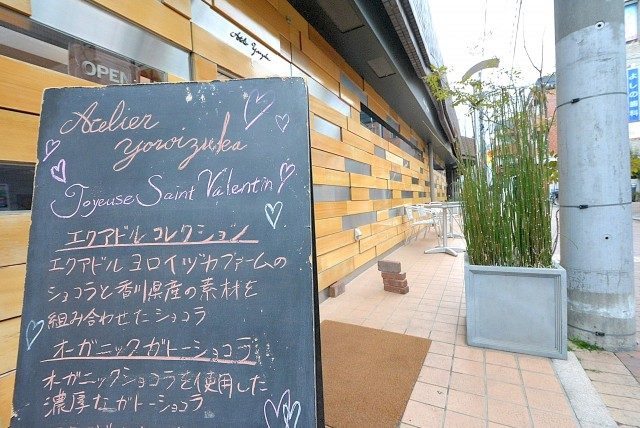 OPEN
Atelier Yoroizuka
Atelier
yoroizuka
Joyeuse Saint Valentin
エクアドルコレクション
エクアドルヨロイヅカファームの
ショコラと香川県産の素材を
組み合わせたショコラ
オーガニックガトーショコラ
オーガニックショコラを使用した
濃厚なガトーショコラ
よしの歯科